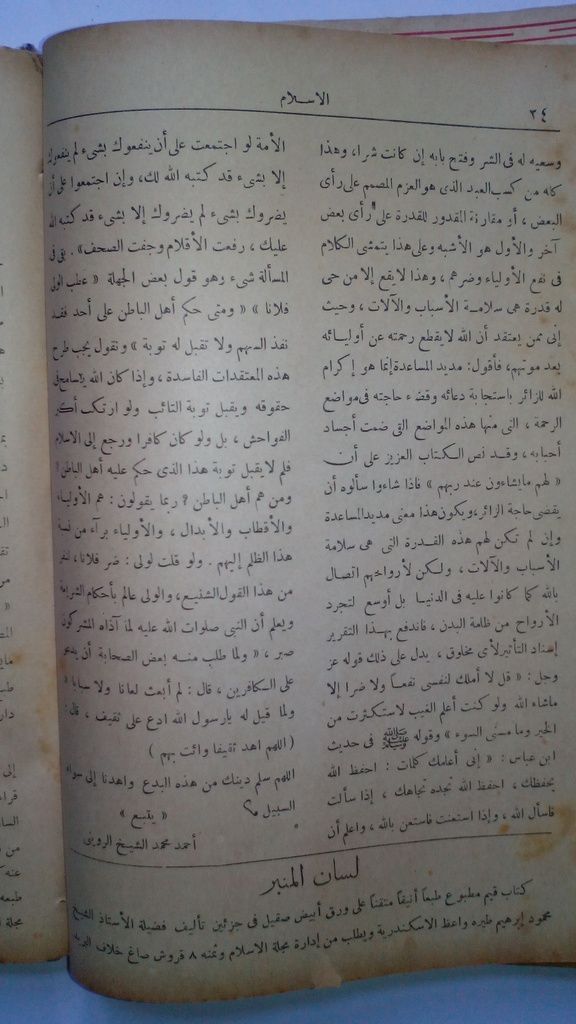 ٣٤
الاسلام
وسعيه له فى الشر وفتح بابه إن كانت شرا، وهذا
كله من كسب العبد الذى هو العزم المصمم على رأى
البعض ، أو مقارنة المقدور للقدرة على رأى بعض
آخر والأول هو الأشبه وعلى هذا يتمشى الكلام
فى نفع الأولياء وضرهم ، وهذا لا يقع إلا من حى
له قدرة هى سلامة الأسباب والآلات ، وحيث
إنى ممن يعتقد أن الله لا يقطع رحمته عن أوليائه
بعد موتهم، فأقول: مديد المساعدة إنما هو إكرام
الله للزائر باستجابة دعائه وقضاء حاجته فى مواضع
الرحمة ، التى منها هذه المواضع التى ضمت أجساد
أحبابه ، وقد نص الكتاب العزيز على أن
« لهم ما يشاءون عند ربهم » فاذا شاءوا سألوه أن
يقضى حاجة الزائر، ويكون هذا معنى مديد المساعدة
وإن لم تكن لهم هذه القدرة التى هى سلامة
الأسباب والآلات ، ولكن لأرواحهم اتصال
بالله كما كانوا عليه فى الدنيا بل أوسع لتجرد
الأرواح من ظلمة البدن ، فاندفع بهذا التقرير
إسناد التأثير لأى مخلوق ، يدل على ذلك قوله عز
وجل : « قل لا أملك لنفسى نفعا ولا ضرا إلا
ماشاء الله ولو كنت أعلم الغيب لاستكثرت من
الخير وما مسنى السوء » وقوله ﷺ فى حديث
ابن عباس : « إنى أعلمك كلمات : احفظ الله
يحفظك ، احفظ الله تجده تجاهك ، إذا سألت
فاسأل الله ، وإذا استعنت فاستعن بالله ، واعلم أن
الأمة لو اجتمعت على أن ينفعوك بشىء لم ينفعوك
إلا بشىء قد كتبه الله لك، وإن اجتمعوا على أن
يضروك بشىء لم يضروك إلا بشىء قد كتبه الله
عليك ، رفعت الأقلام وجفت الصحف» . بقى فى
المسألة شىء وهو قول بعض الجهلة « عطب الولى
فلانا » « ومتى حكم أهل الباطن على أحد فقد
نفذ السهم ولا تقبل له توبة » ونقول يجب طرح
هذه المعتقدات الفاسدة ، وإذا كان الله يتسامح فى
حقوقه ويقبل توبة التائب ولو ارتكب أكبر
الفواحش ، بل ولو كان كافرا ورجع إلى الاسلام
فلم لا يقبل توبة هذا الذى حكم عليه أهل الباطن ؟
ومن هم أهل الباطن ؟ ربما يقولون : هم الأولياء
والأقطاب والأبدال ، والأولياء برآء من نسبة
هذا الظلم إليهم . ولو قلت لولى : ضر فلانا ، لنفر
من هذا القول الشنيع، والولى عالم بأحكام الشريعة
ويعلم أن النبى صلوات الله عليه لما آذاه المشركون
صبر ، « ولما طلب منه بعض الصحابة أن يدعو
على الكافرين ، قال : لم أبعث لعانا ولا سبابا »
ولما قيل له يارسول الله ادع على ثقيف ، قال :
( اللهم اهد ثقيفا وائت بهم )
اللهم سلم دينك من هذه البدع واهدنا إلى سواء
السبيل
« يتبع »
أحمد محمد الشيخ الروبى
لسان المنبر
كتاب قيم مطبوع طبعاً أنيقاً متقناً على ورق أبيض صقيل فى جزئين تأليف فضيلة الأستاذ الشيخ
محمود إبرهيم طيره واعظ الاسكندرية ويطلب من إدارة مجلة الاسلام وثمنه ٨ قروش صاغ خلاف البريد